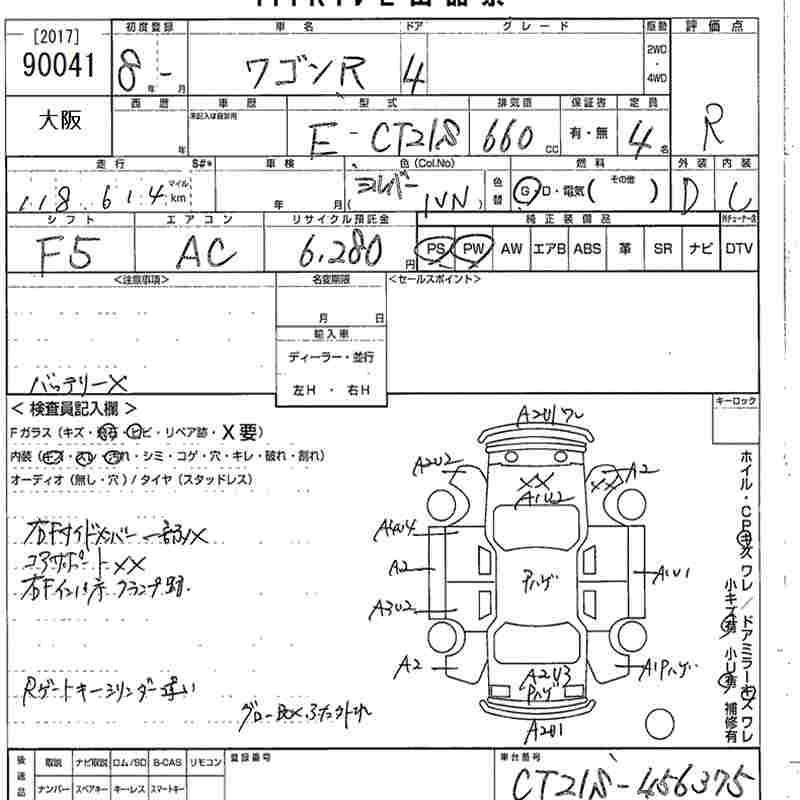 [2017]
90041
初度登録 車名 ドア グレード 駆動 評価点
8 年 - 月 ワゴンR 4 2WD・4WD R
大阪
西暦 車歴 型式 排気量 保証書 定員
年 未記入は自家用 E-CT21S 660 cc 有・無 4名
走行 S#* 車検 色(Col.No) 色替 燃料 外装 内装
118,614 マイル km 年 月 シルバー ( 1NN ) G・D・電気( その他 ) D
シフト エアコン リサイクル預託金 純正装備品
F5 AC 6,280 円 PS PW AW エアB ABS 革 SR ナビ DTV
<注意事項> 名変期限 <セールスポイント>
月 日
輸入車
ディーラー・並行
左H ・ 右H
バッテリーX
< 検査員記入欄 > キーロック
Fガラス(キズ・飛石・ヒビ・リペア跡・X要)
内装(キズ・スレ・汚れ・シミ・コゲ・穴・キレ・破れ・割れ)
オーディオ(無し・穴)/タイヤ(スタッドレス)
右Fサイドメンバー 一部XX
コアサポート XX
右Fインパネ クランプ跡
Rゲートキーシリンダー違い
グローBOX ふたハズれ
A2U1ワレ
A2U2 XX A1U2 XX A2
A3U4
A2 Pハゲ A1U1
A3U2
A2 A2U3 Pハゲ A1Pハゲ
A2U1
ホイル・CPキズ ワレ/ドアミラーキズ ワレ
小キズ有 小U有 補修有
後送品 取説 ナビ取説 ロム/SD B-CAS リモコン 登録番号 車台番号
ナンバー スペアキー キーレス スマートキー CT21S-456375